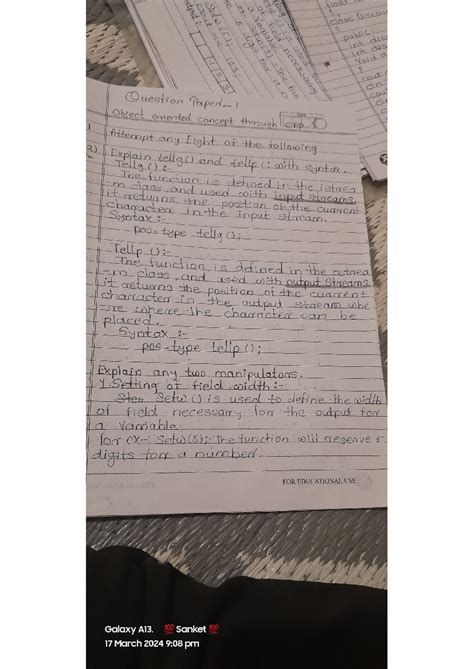 Question Paper-1
Object oriented concept through cpp
1 Attempt any Eight of the following
2) Explain tellg() and tellp() : with syntax.
Tellg() :-
The function is defined in the istrea
m class and used with input streams
it returns the position of the current
character in the input stream.
Syntax :-
pos-type tellg();
Tellp() :-
The function is defined in the ostrea
-m class, and used with output streams
it returns the position of the current
character in the output stream whe
-re where the character can be
placed.
Syntax :-
pos-type tellp();
Explain any two manipulators.
1 Setting of field width :-
Setw() is used to define the width
of field necessary for the output for
a variable
for ex-1 Setw(5); The function will reserve 5
digits for a number.
FOR EDUCATIONAL USE
Galaxy A13. 💯 Sanket 💯
17 March 2024 9:08 pm
class Discou
public: